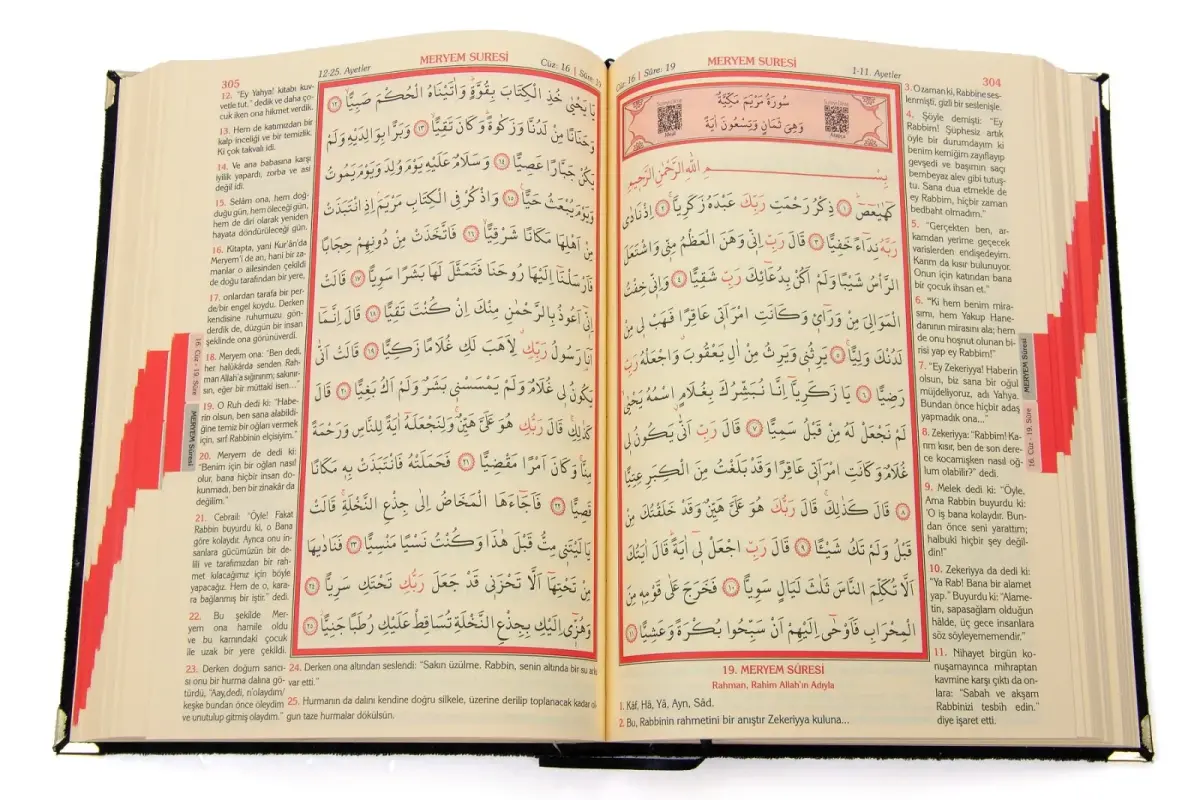 304
MERYEM SURESİ
Cüz: 16 | Sûre: 19
1-11. Ayetler
سُورَةُ مَرْيَمَ مَكِّيَّةٌ
وَهِيَ ثَمَانٍ وَتِسْعُونَ اٰيَةً
بِسْمِ اللّٰهِ الرَّحْمٰنِ الرَّحِيمِ
كٓهٰيٰعٓصٓ ١ ذِكْرُ رَحْمَتِ رَبِّكَ عَبْدَهُ زَكَرِيَّا ٢ اِذْ نَادٰى
رَبَّهُ نِدَٓاءً خَفِيًّا ٣ قَالَ رَبِّ اِنّ۪ي وَهَنَ الْعَظْمُ مِنّ۪ي وَاشْتَعَلَ
الرَّأْسُ شَيْبًا وَلَمْ اَكُنْ بِدُعَٓائِكَ رَبِّ شَقِيًّا ٤ وَاِنّ۪ي خِفْتُ
الْمَوَالِيَ مِنْ وَرَٓاء۪ي وَكَانَتِ امْرَاَت۪ي عَاقِرًا فَهَبْ ل۪ي مِنْ
لَدُنْكَ وَلِيًّا ٥ يَرِثُن۪ي وَيَرِثُ مِنْ اٰلِ يَعْقُوبَ وَاجْعَلْهُ رَبِّ
رَضِيًّا ٦ يَا زَكَرِيَّٓا اِنَّا نُبَشِّرُكَ بِغُلَامٍ اسْمُهُ يَحْيٰى
لَمْ نَجْعَلْ لَهُ مِنْ قَبْلُ سَمِيًّا ٧ قَالَ رَبِّ اَنّٰى يَكُونُ ل۪ي
غُلَامٌ وَكَانَتِ امْرَاَت۪ي عَاقِرًا وَقَدْ بَلَغْتُ مِنَ الْكِبَرِ عِتِيًّا
٨ قَالَ كَذٰلِكَ قَالَ رَبُّكَ هُوَ عَلَيَّ هَيِّنٌ وَقَدْ خَلَقْتُكَ مِنْ
قَبْلُ وَلَمْ تَكُ شَيْـًٔا ٩ قَالَ رَبِّ اجْعَلْ ل۪ٓي اٰيَةً قَالَ اٰيَتُكَ
اَلَّا تُكَلِّمَ النَّاسَ ثَلٰثَ لَيَالٍ سَوِيًّا ١٠ فَخَرَجَ عَلٰى قَوْمِه۪ مِنَ
الْمِحْرَابِ فَاَوْحٰٓى اِلَيْهِمْ اَنْ سَبِّحُوا بُكْرَةً وَعَشِيًّا ١١
19. MERYEM SÛRESİ
Rahman, Rahim Allah'ın Adıyla
1. Kâf, Hâ, Yâ, Ayn, Sâd.
2. Bu, Rabbinin rahmetini bir anıştır Zekeriyya kuluna...
3. O zaman ki, Rabbine ses-
lenmişti, gizli bir seslenişle.
4. Şöyle demişti: "Ey
Rabbim! Şüphesiz artık
öyle bir durumdayım ki
benim kemiğim zayıflayıp
gevşedi ve başımın saçı
bembeyaz alev gibi tutuş-
tu. Sana dua etmekle de
ey Rabbim, hiçbir zaman
bedbaht olmadım."
5. "Gerçekten ben, ar-
kamdan yerime geçecek
varislerden endişedeyim.
Karım da kısır bulunuyor.
Onun için katından bana
bir çocuk ihsan et."
6. "Ki hem benim mira-
sımı, hem Yakup Hane-
danının mirasını ala; hem
de onu hoşnut olunan bi-
risi yap ey Rabbim!"
7. "Ey Zekeriyya! Haberin
olsun, biz sana bir oğul
müjdeliyoruz, adı Yahya.
Bundan önce hiçbir adaş
yapmadık ona..."
8. Zekeriyya: "Rabbim! Ka-
rım kısır, ben de son dere-
ce kocamışken nasıl oğ-
lum olabilir?" dedi.
9. Melek dedi ki: "Öyle.
Ama Rabbin buyurdu ki:
'O iş bana kolaydır. Bun-
dan önce seni yarattım;
halbuki hiçbir şey değil-
din!"
10. Zekeriyya da dedi ki:
"Ya Rab! Bana bir alamet
yap." Buyurdu ki: "Alame-
tin, sapasağlam olduğun
hâlde, üç gece insanlara
söz söyleyememendir."
11. Nihayet birgün ko-
nuşamayınca mihraptan
kavmine karşı çıktı da on-
lara: "Sabah ve akşam
Rabbinizi tesbih edin."
diye işaret etti.
MERYEM Sûresi
16. Cüz - 19. Sûre
305
12-25. Ayetler
MERYEM SURESİ
Cüz: 16 | Sûre: 19
يَا يَحْيٰى خُذِ الْكِتَابَ بِقُوَّةٍ وَاٰتَيْنَاهُ الْحُكْمَ صَبِيًّا ١٢
وَحَنَانًا مِنْ لَدُنَّا وَزَكٰوةً وَكَانَ تَقِيًّا ١٣ وَبَرًّا بِوَالِدَيْهِ وَلَمْ
يَكُنْ جَبَّارًا عَصِيًّا ١٤ وَسَلَامٌ عَلَيْهِ يَوْمَ وُلِدَ وَيَوْمَ يَمُوتُ
وَيَوْمَ يُبْعَثُ حَيًّا ١٥ وَاذْكُرْ فِي الْكِتَابِ مَرْيَمَ اِذِ انْتَبَذَتْ
مِنْ اَهْلِهَا مَكَانًا شَرْقِيًّا ١٦ فَاتَّخَذَتْ مِنْ دُونِهِمْ حِجَابًا
فَاَرْسَلْنَٓا اِلَيْهَا رُوحَنَا فَتَمَثَّلَ لَهَا بَشَرًا سَوِيًّا ١٧ قَالَتْ
اِنّ۪ٓي اَعُوذُ بِالرَّحْمٰنِ مِنْكَ اِنْ كُنْتَ تَقِيًّا ١٨ قَالَ اِنَّمَٓا
اَنَا رَسُولُ رَبِّكِ لِاَهَبَ لَكِ غُلَامًا زَكِيًّا ١٩ قَالَتْ اَنّٰى
يَكُونُ ل۪ي غُلَامٌ وَلَمْ يَمْسَسْن۪ي بَشَرٌ وَلَمْ اَكُ بَغِيًّا ٢٠ قَالَ
كَذٰلِكِ قَالَ رَبُّكِ هُوَ عَلَيَّ هَيِّنٌ وَلِنَجْعَلَهُٓ اٰيَةً لِلنَّاسِ وَرَحْمَةً
مِنَّا وَكَانَ اَمْرًا مَقْضِيًّا ٢١ فَحَمَلَتْهُ فَانْتَبَذَتْ بِه۪ مَكَانًا
قَصِيًّا ٢٢ فَاَجَٓاءَهَا الْمَخَاضُ اِلٰى جِذْعِ النَّخْلَةِ قَالَتْ
يَا لَيْتَن۪ي مِتُّ قَبْلَ هٰذَا وَكُنْتُ نَسْيًا مَنْسِيًّا ٢٣ فَنَادٰيهَا
مِنْ تَحْتِهَٓا اَلَّا تَحْزَن۪ي قَدْ جَعَلَ رَبُّكِ تَحْتَكِ سَرِيًّا ٢٤
وَهُزّ۪ٓي اِلَيْكِ بِجِذْعِ النَّخْلَةِ تُسَاقِطْ عَلَيْكِ رُطَبًا جَنِيًّا ٢٥
12. "Ey Yahya! kitabı kuv-
vetle tut." dedik ve daha ço-
cuk iken ona hikmet verdik.
13. Hem de katımızdan bir
kalp inceliği ve bir temizlik.
Ki çok takvalı idi.
14. Ve ana babasına karşı
iyilik yapardı, zorba ve asi
değil idi.
15. Selâm ona, hem doğ-
duğu gün, hem öleceği gün,
hem de diri olarak yeniden
hayata döndürüleceği gün.
16. Kitapta, yani Kur'an'da
Meryem'i de an, hani bir za-
manlar o ailesinden çekildi
de doğu tarafından bir yere,
17. onlardan tarafa bir per-
de/bir engel koydu. Derken
kendisine ruhumuzu gön-
derdik de, düzgün bir insan
şeklinde ona görünüverdi.
18. Meryem ona: "Ben dedi,
her halükârda senden Rah-
man Allah'a sığınırım; sakınır-
san, eğer bir müttaki isen..."
19. O Ruh dedi ki: "Habe-
rin olsun, ben sana alabildi-
ğine temiz bir oğlan vermek
için, sırf Rabbinin elçisiyim."
20. Meryem de dedi ki:
"Benim için bir oğlan nasıl
olur, bana hiçbir insan do-
kunmadı, ben bir zinakâr da
değilim."
21. Cebrail: "Öyle! Fakat
Rabbin buyurdu ki, o Bana
göre kolaydır. Ayrıca onu in-
sanlara gücümüzün bir de-
lili ve tarafımızdan bir rah-
met kılacağımız için böyle
yapacağız. Hem de o, kara-
ra bağlanmış bir iştir." dedi.
22. Bu şekilde Mer-
yem ona hamile oldu
ve bu karnındaki çocuk
ile uzak bir yere çekildi.
23. Derken doğum sancı-
sı onu bir hurma dalına gö-
türdü, "Aay,dedi, n'olaydım/
keşke bundan önce öleydim
ve unutulup gitmiş olaydım."
24. Derken ona altından seslendi: "Sakın üzülme. Rabbin, senin altında bir su
var etti."
25. Hurmanın dalını kendine doğru silkele, üzerine derilip toplanacak kadar
gun taze hurmalar dökülsün.
16. Cüz - 19. Sûre
MERYEM Sûresi